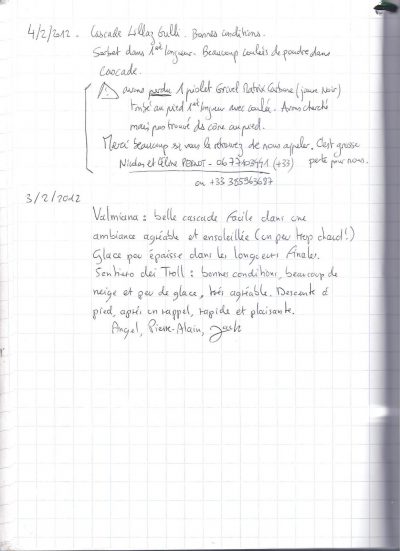 4/2/2012. Cascade Lillaz Gulli. Bonnes conditions.
Sorbet dans 1ère longueur. Beaucoup coulées de poudre dans
Cascade.
⚠ avons perdu 1 piolet Grivel Matrix Carbone (jaune noir)
Tombé au pied 1ère longueur avec coulée. Avons cherché
mais pas trouvé ds cône au pied.
Merci beaucoup si vous le retrouvez de nous appeler. C'est grosse
perte pour nous.
Nicolas et Céline - (+33)
ou +33 385963687
3/2/2012
Valmiana : belle cascade facile dans une
ambiance agréable et ensoleillée (un peu trop chaud!)
Glace peu épaisse dans les longueurs finales.
Sentiero dei Troll : bonnes conditions, beaucoup de
neige et peu de glace, très agréable. Descente à
pied, après un rappel, rapide et plaisante.
Angel, Pierre-Alain, Josh